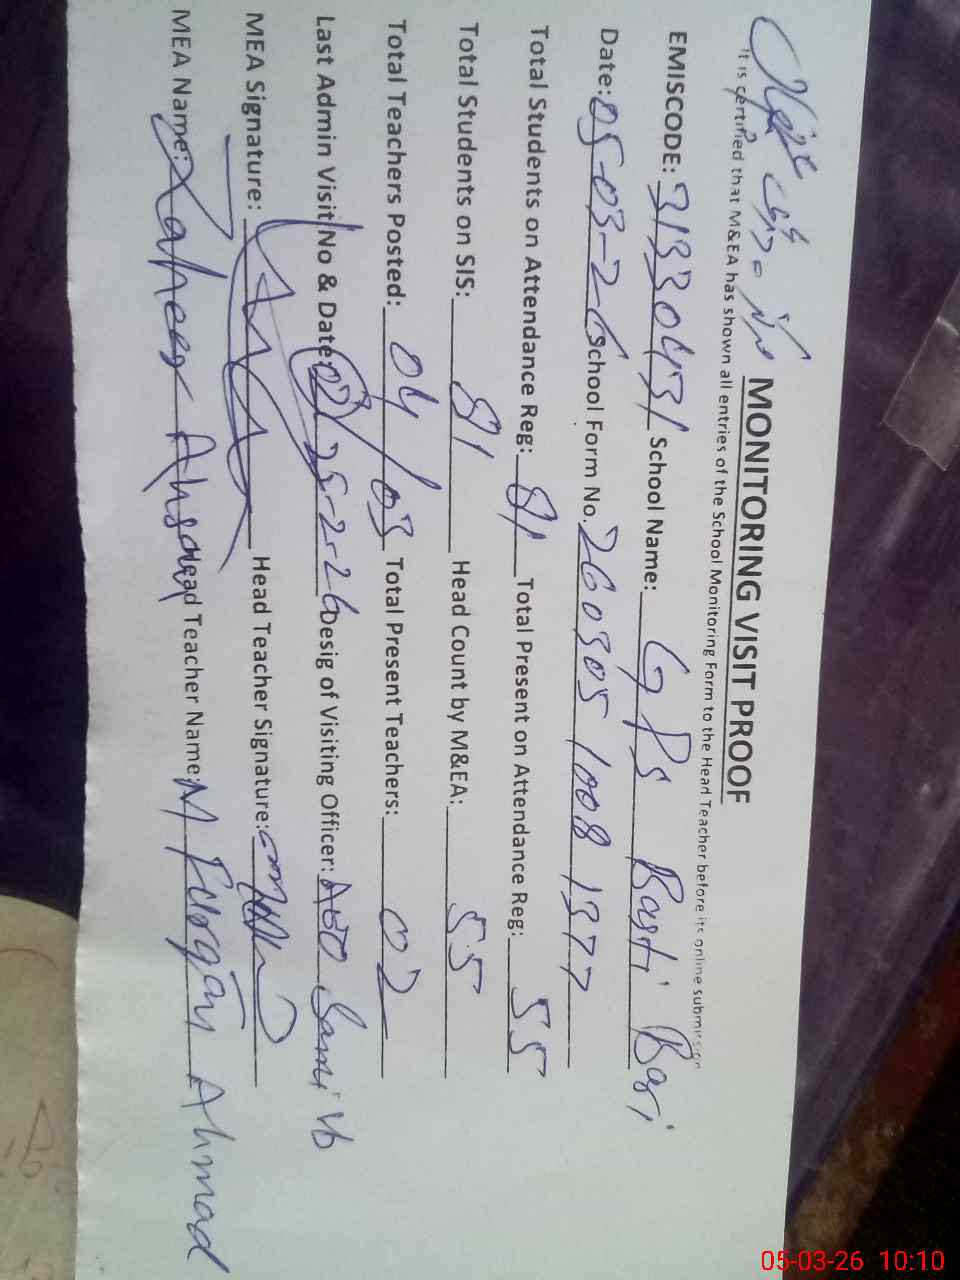 MONITORING VISIT PROOF
It is certified that M&EA has shown all entries of the School Monitoring Form to the Head Teacher before its online submission
EMISCODE: 31330431 School Name: GPS Basti Bari
Date: 05-03-26 School Form No. 260305 1008 1377
Total Students on Attendance Reg: 81 Total Present on Attendance Reg: 55
Total Students on SIS: 81 Head Count by M&EA: 55
Total Teachers Posted: 04/03 Total Present Teachers: 02
Last Admin Visit No & Date: 02/25-2-26 Desig of Visiting Officer: AEO
MEA Signature: Head Teacher Signature:
MEA Name: Zaheer Ahmad Head Teacher Name: M Furqan Ahmad
05-03-26 10:10